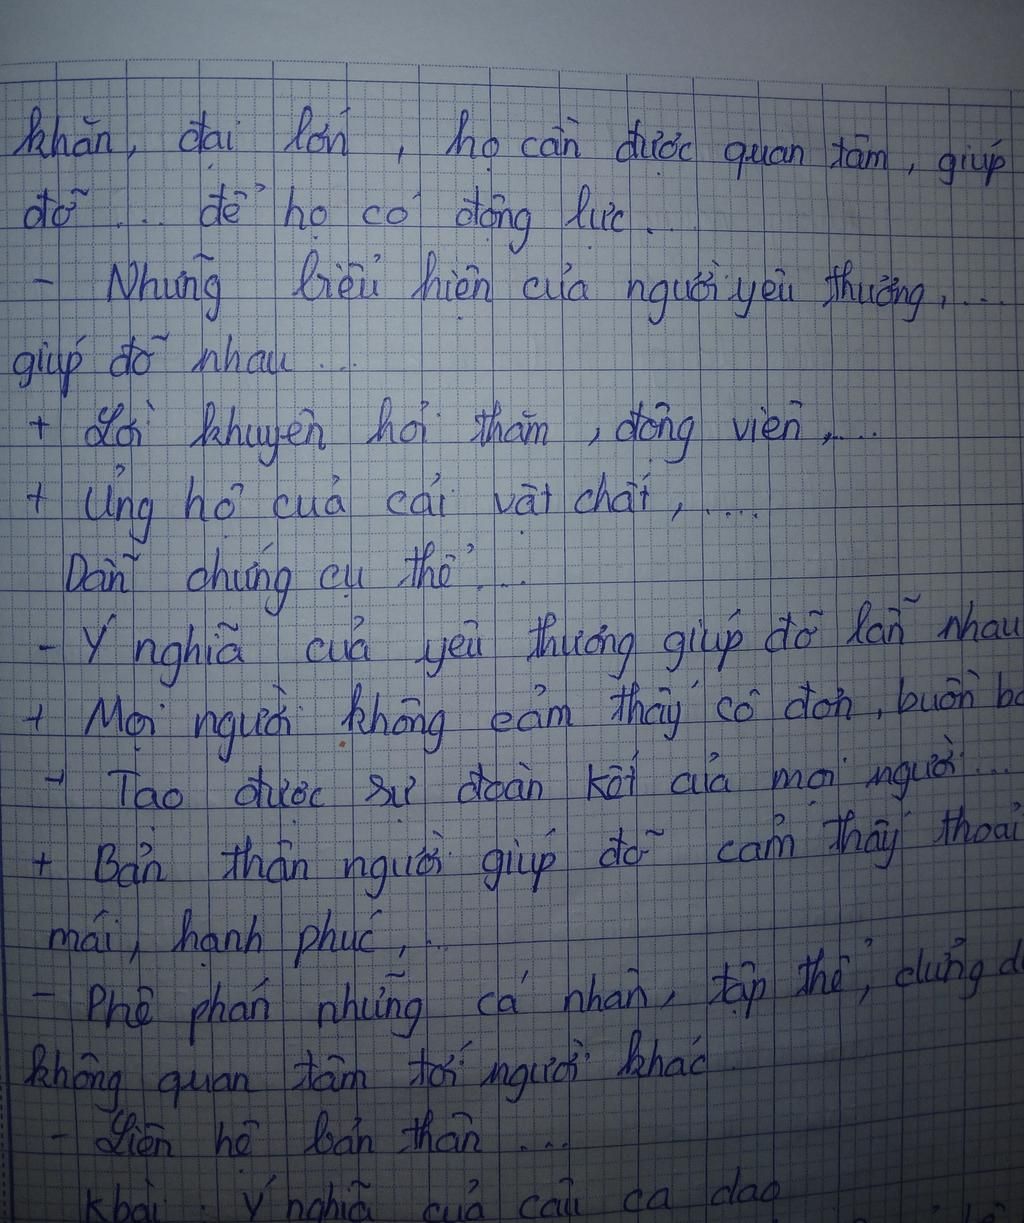 khăn, đại lớn, họ cần được quan tâm, giúp
đỡ ... để họ có động lực...
- Những biểu hiện của người yêu thương, ...
giúp đỡ nhau ...
+ Lời khuyên hỏi thăm, động viên, ...
+ Ủng hộ của cải vật chất, ....
Dẫn chứng cụ thể ...
- Ý nghĩa của yêu thương giúp đỡ lẫn nhau
+ Mọi người không cảm thấy cô đơn, buồn
+ Tạo được sự đoàn kết của mọi người ...
+ Bản thân người giúp đỡ cảm thấy thoải
mái, hạnh phúc, ...
- Phê phán những cá nhân, tập thể,
không quan tâm tới người khác
- Liên hệ bản thân ...
Ý nghĩa của câu ca dao